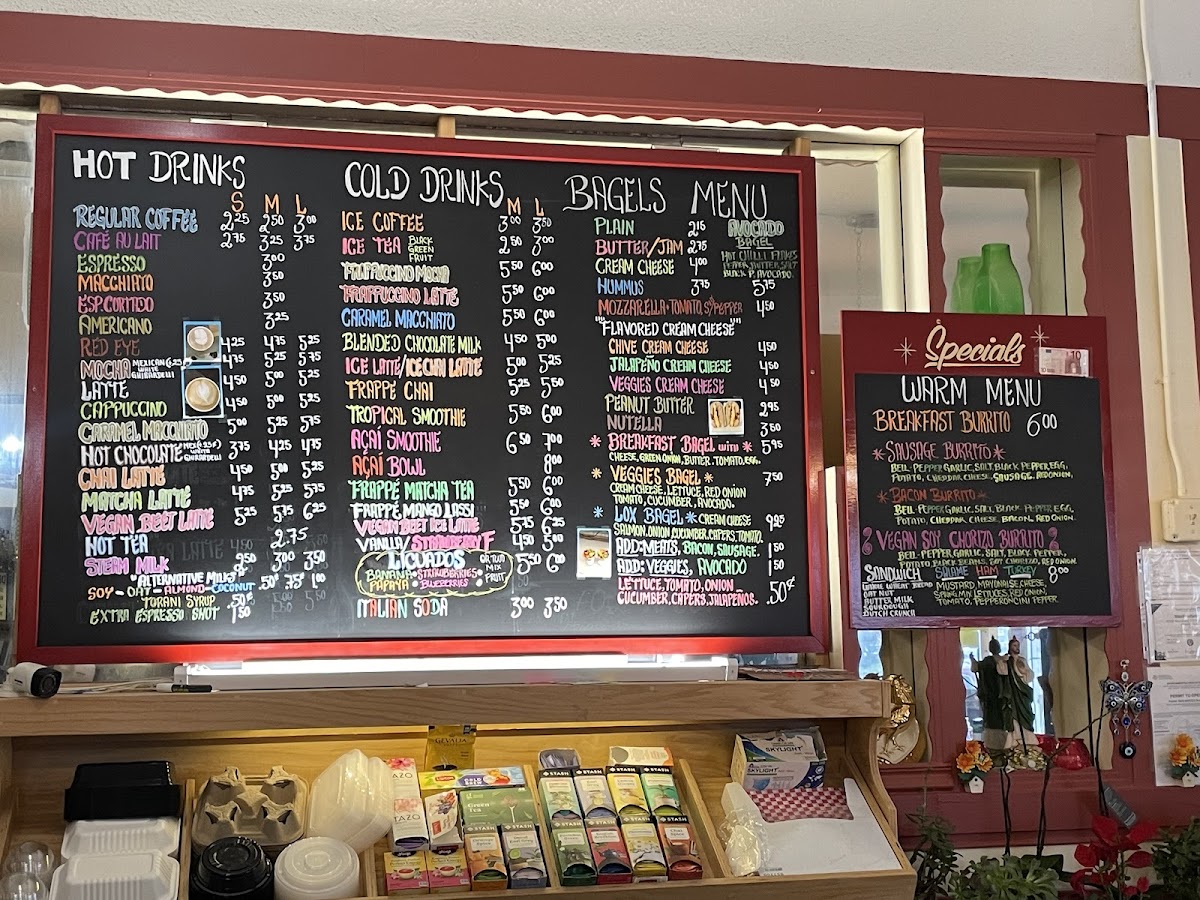 HOT DRINKS
S M L
REGULAR COFFEE 2.25 2.50 3.00
CAFE AU LAIT 2.75 3.25 3.75
ESPRESSO 3.00
MACCHIATO 3.50
ESP. CORTADO 3.50
AMERICANO 3.25
RED EYE 4.25 4.75 5.25
MOCHA MEXICAN (.25¢) WHITE GHIRARDELLI 4.75 5.25 5.75
LATTE 4.50 5.00 5.50
CAPPUCCINO 4.50 5.00 5.25
CARAMEL MACCHIATO 5.00 5.25 5.75
HOT CHOCOLATE WHITE GHIRARDELLI 3.75 4.25 4.75
CHAI LATTE 4.50 5.00 5.25
MATCHA LATTE 4.75 5.25 5.75
VEGAN BEET LATTE 5.25 5.75 6.25
HOT TEA 2.75
STEAM MILK 2.50 3.00 3.50
"ALTERNATIVE MILKS"
SOY - OAT - ALMOND - COCONUT .50¢ .75¢ 1.00
TORANI SYRUP .50¢
EXTRA ESPRESSO SHOT 1.50
COLD DRINKS
M L
ICE COFFEE 3.00 3.50
ICE TEA BLACK GREEN FRUIT 2.50 3.00
FRAPPUCCINO MOCHA 5.50 6.00
FRAPPUCCINO LATTE 5.50 6.00
CARAMEL MACCHIATO 5.50 6.00
BLENDED CHOCOLATE MILK 4.50 5.00
ICE LATTE/ICE CHAI LATTE 5.00 5.25
FRAPPÉ CHAI 5.25 5.50
TROPICAL SMOOTHIE 5.50 6.00
AÇAÍ SMOOTHIE 6.50 7.00
AÇAÍ BOWL 8.00
FRAPPÉ MATCHA TEA 5.50 6.00
FRAPPÉ MANGO LASSI 5.50 6.00
VEGAN BEET ICE LATTE 5.75 6.25
VANILLA/STRAWBERRY F 4.50 5.00
LICUADOS 5.50 6.00
BANANA • STRAWBERRIES •
PAPAYA • BLUEBERRIES
OR TUTTI MIX FRUIT
ITALIAN SODA 3.00 3.50
BAGELS MENU
PLAIN 2.15
BUTTER/JAM 2.75
CREAM CHEESE 4.00
HUMMUS 3.75
AVOCADO
BAGEL
HOT CHILLI FLAKES
PEPPER, BUTTER, SALT
BLACK P. AVOCADO.
5.75
MOZZARELLA + TOMATO, S/PEPPER 4.50
"FLAVORED CREAM CHEESE"
CHIVE CREAM CHEESE 4.50
JALAPEÑO CREAM CHEESE 4.50
VEGGIES CREAM CHEESE 4.50
PEANUT BUTTER 2.95
NUTELLA 3.50
* BREAKFAST BAGEL WITH * 5.95
CHEESE, GREEN ONION, BUTTER, TOMATO, EGG.
* VEGGIES BAGEL * 7.50
CREAM CHEESE, LETTUCE, RED ONION
TOMATO, CUCUMBER, AVOCADO.
* LOX BAGEL * CREAM CHEESE 9.25
SALMON, ONION, CUCUMBER, CAPERS, TOMATO.
ADD: MEATS, BACON, SAUSAGE. 1.50
ADD: VEGGIES, AVOCADO 1.50
LETTUCE, TOMATO, ONION
CUCUMBER, CAPERS, JALAPEÑOS. .50¢
Specials
WARM MENU
BREAKFAST BURRITO 6.00
* SAUSAGE BURRITO *
BELL PEPPER, GARLIC, SALT, BLACK PEPPER, EGG,
POTATO, CHEDDAR CHEESE, SAUSAGE, RED ONION.
* BACON BURRITO *
BELL PEPPER, GARLIC, SALT, BLACK PEPPER, EGG,
POTATO, CHEDDAR CHEESE, BACON, RED ONION.
VEGAN SOY CHORIZO BURRITO
BELL PEPPER, GARLIC, SALT, BLACK PEPPER,
POTATO, BLACK BEANS, SOY CHORIZO, RED ONION.
SANDWICH SALAME HAM TURKEY 8.00
MUSTARD, MAYONAISE, CHEESE,
SPRING MIX LETTUCES, RED ONION,
TOMATO, PEPPERONCINI PEPPER.
OAT NUT
BUTTER MILK
SOURDOUGH
DUTCH CRUNCH
GEVALIA
TAZO
Green Tea
STASH STASH STASH STASH
STASH STASH
SKYLIGHT
SKYLIGHT
TAZO